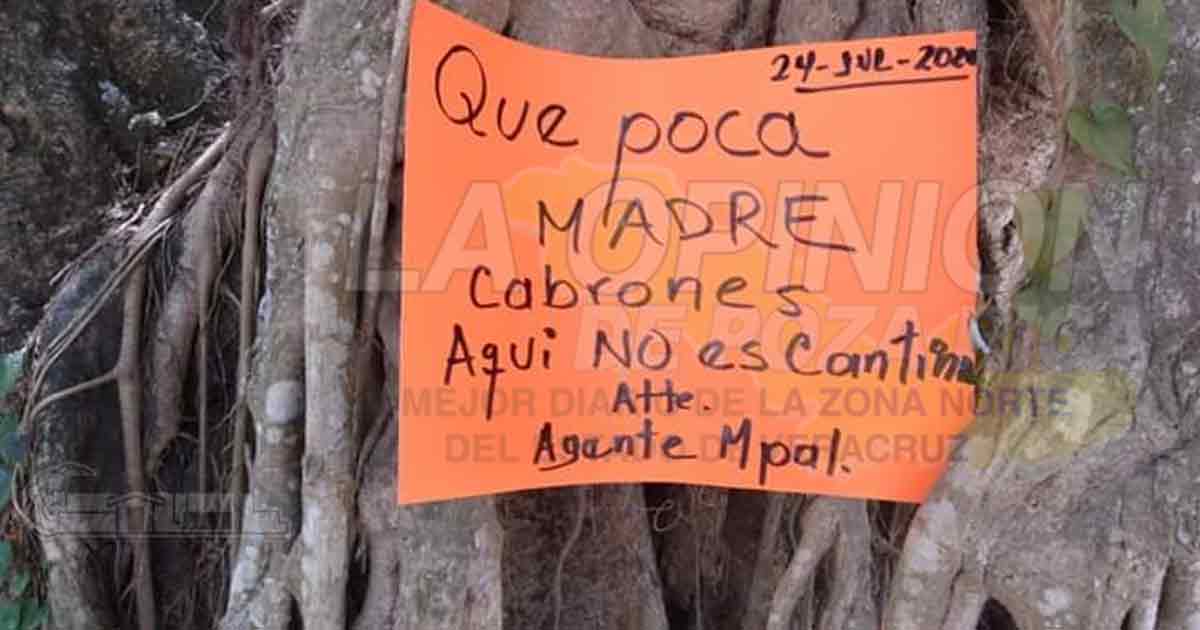 24-JUL-2020
Que poca
MADRE
Cabrones
Aqui NO es Cantina
Atte.
Agente Mpal.
LA OPINION
DE POZA RICA
MEJOR DIARIO DE LA ZONA NORTE
DEL ESTADO DE VERACRUZ